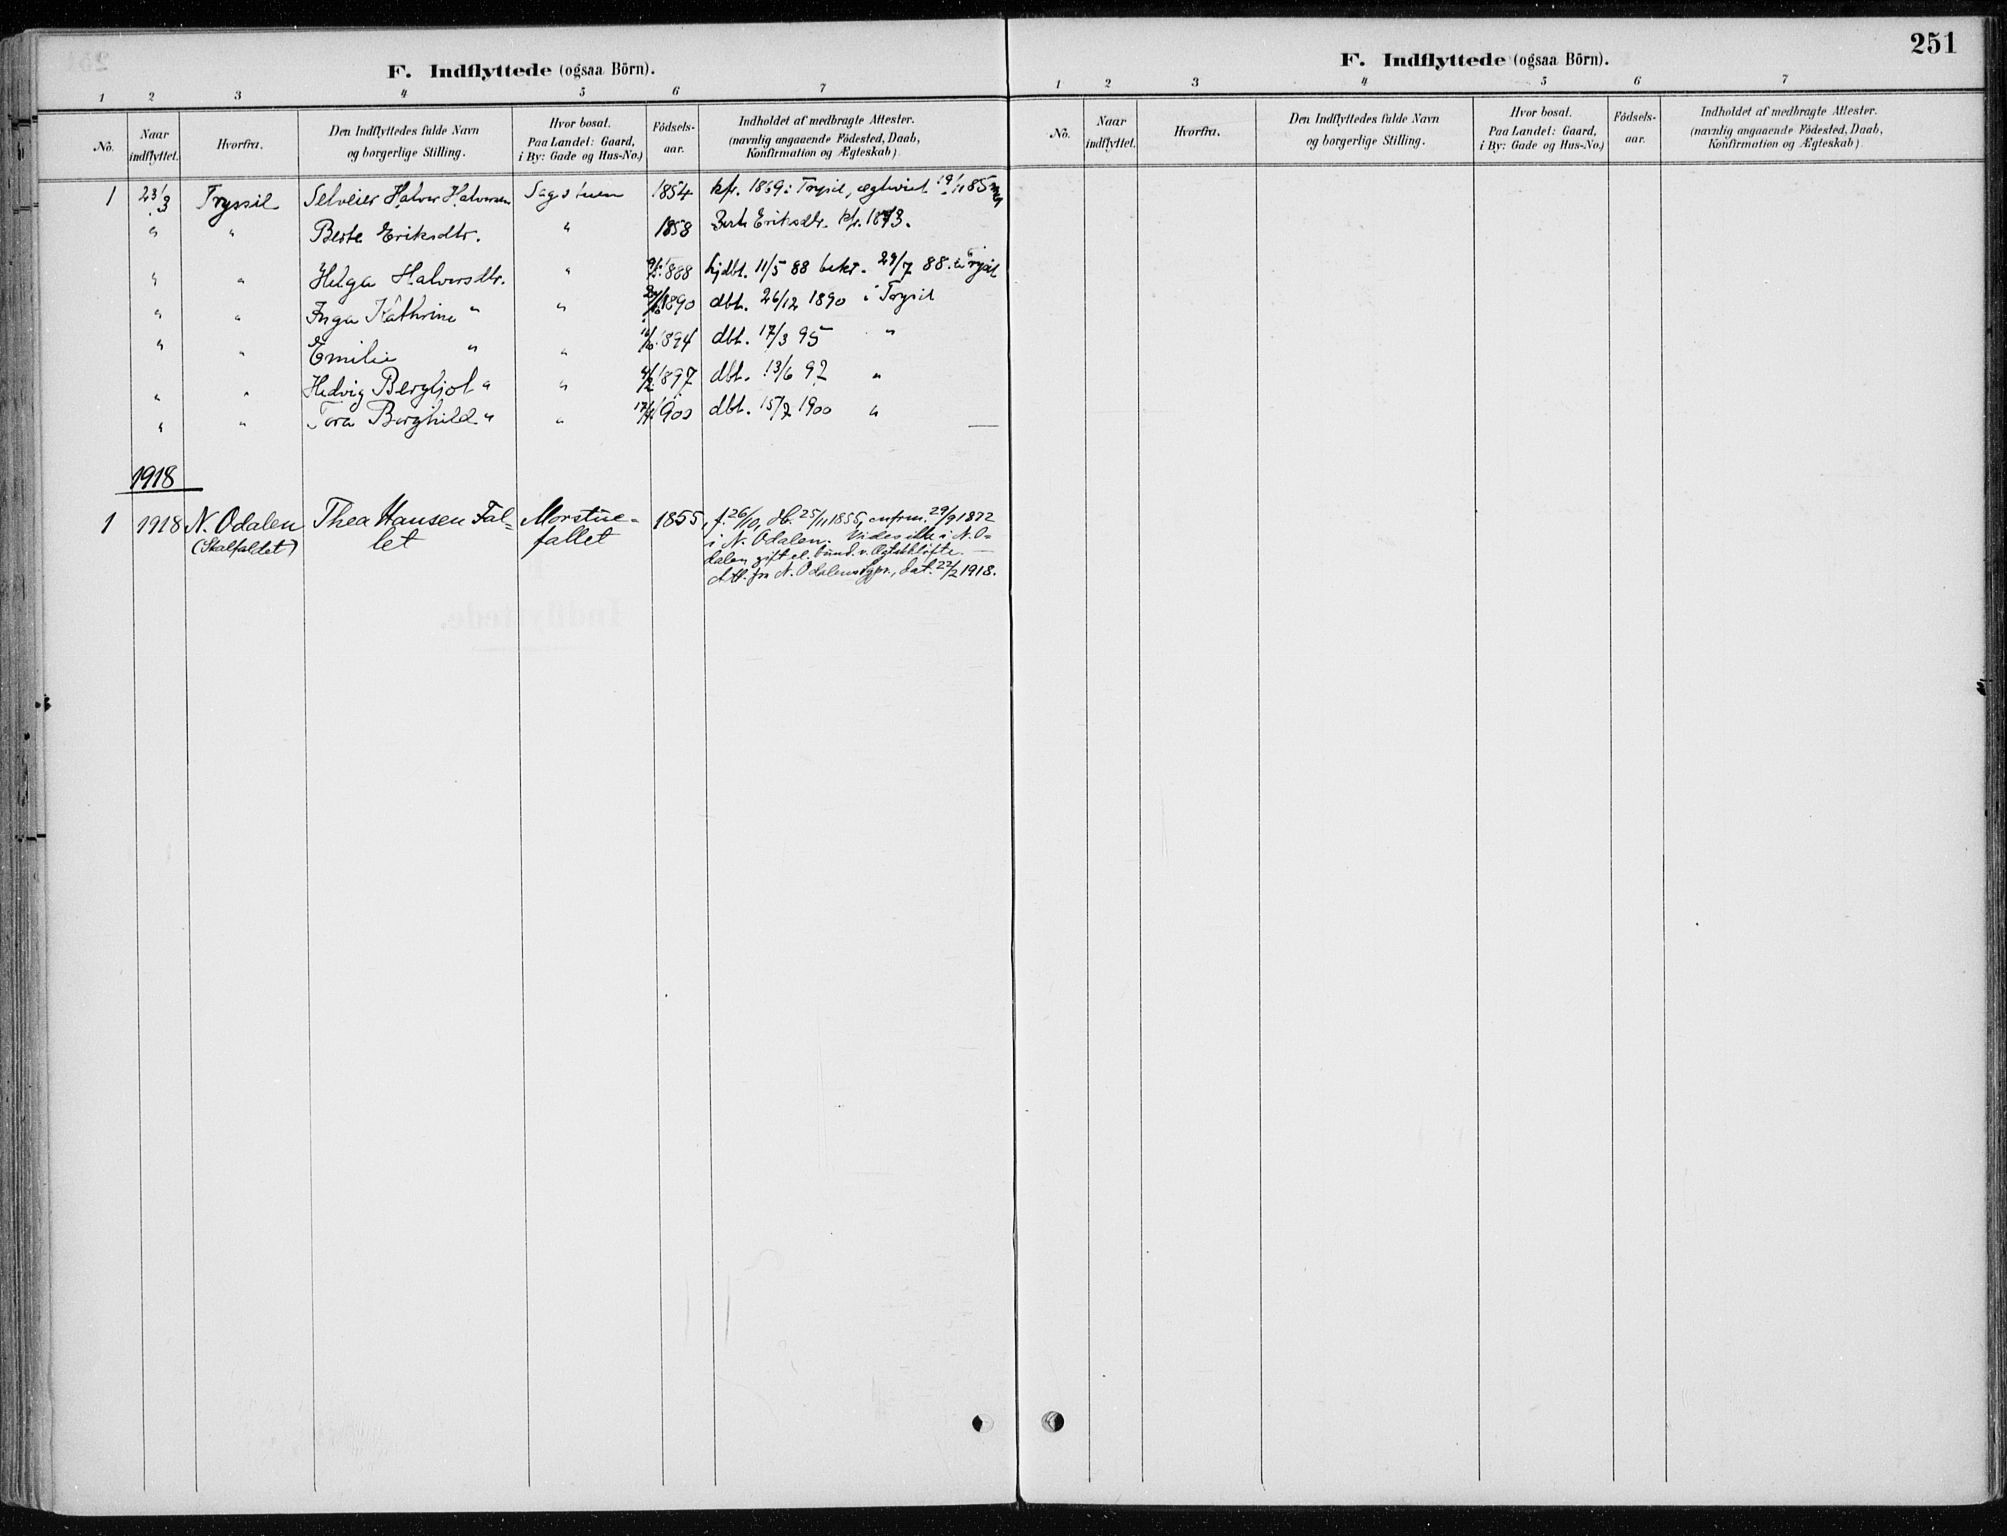 251
F. Indflyttede (ogsaa Börn).
1 2 3 4 5 6 7
No. Naar indflyttet. Hvorfra. Den Indflyttedes fulde Navn og borgerlige Stilling. Hvor bosat. Paa Landet: Gaard, i By: Gade og Hus-No.) Födsels-aar. Indholdet af medbragte Attester. (navnlig angaaende Födested, Daab, Konfirmation og Ægteskab)
1 23/3 Tryssil Selveier Halvor Halvorsen Sagstuen 1854 kfr. 1869 i Trysil, ægteviet 19/11 85 m
" " Berte Eriksdtr. " 1858 Berte Eriksdtr. kfr. 1873.
" " Helga Halvorsdtr. " 1888 hjdbt. 11/5 88 bekr. 29/7 88. i Trysil
" " Inga Kathrine " " 1890 dbt. 26/12 1890 i Trysil
" " Emilie " " 1894 dbt. 17/3 95 "
" " Hedvig Bergljot " " 4/2 1897 dbt. 13/6 97 "
" " Tora Borghild " " 17/4 1900 dbt. 15/7 1900 "
1918
1 1918 N. Odalen Thea Hansen Fal- Morstue- 1855, f. 26/10, db. 25/11 1855, confrm. 29/9 1872
(Skalfaldet) let fallet i N. Odalen. Vides ikke i N. O-
dalen gift el. bund. v. Ægteskbløfte. —
Att. fra N. Odalens Sgpr., dat. 22/2 1918.
F. Indflyttede (ogsaa Börn).
1 2 3 4 5 6 7
No. Naar indflyttet. Hvorfra. Den Indflyttedes fulde Navn og borgerlige Stilling. Hvor bosat. Paa Landet: Gaard, i By: Gade og Hus-No.) Födsels-aar. Indholdet af medbragte Attester. (navnlig angaaende Födested, Daab, Konfirmation og Ægteskab)